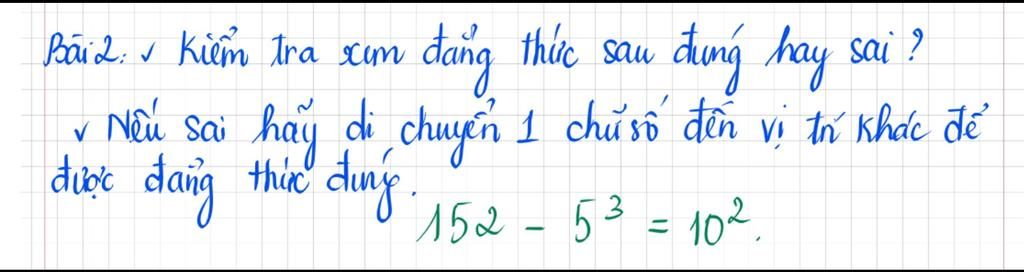 Bài 2: ✓ Kiểm tra xem đẳng thức sau đúng hay sai?
✓ Nếu sai hãy di chuyển 1 chữ số đến vị trí khác để
được đẳng thức đúng.
152 - 5³ = 10².